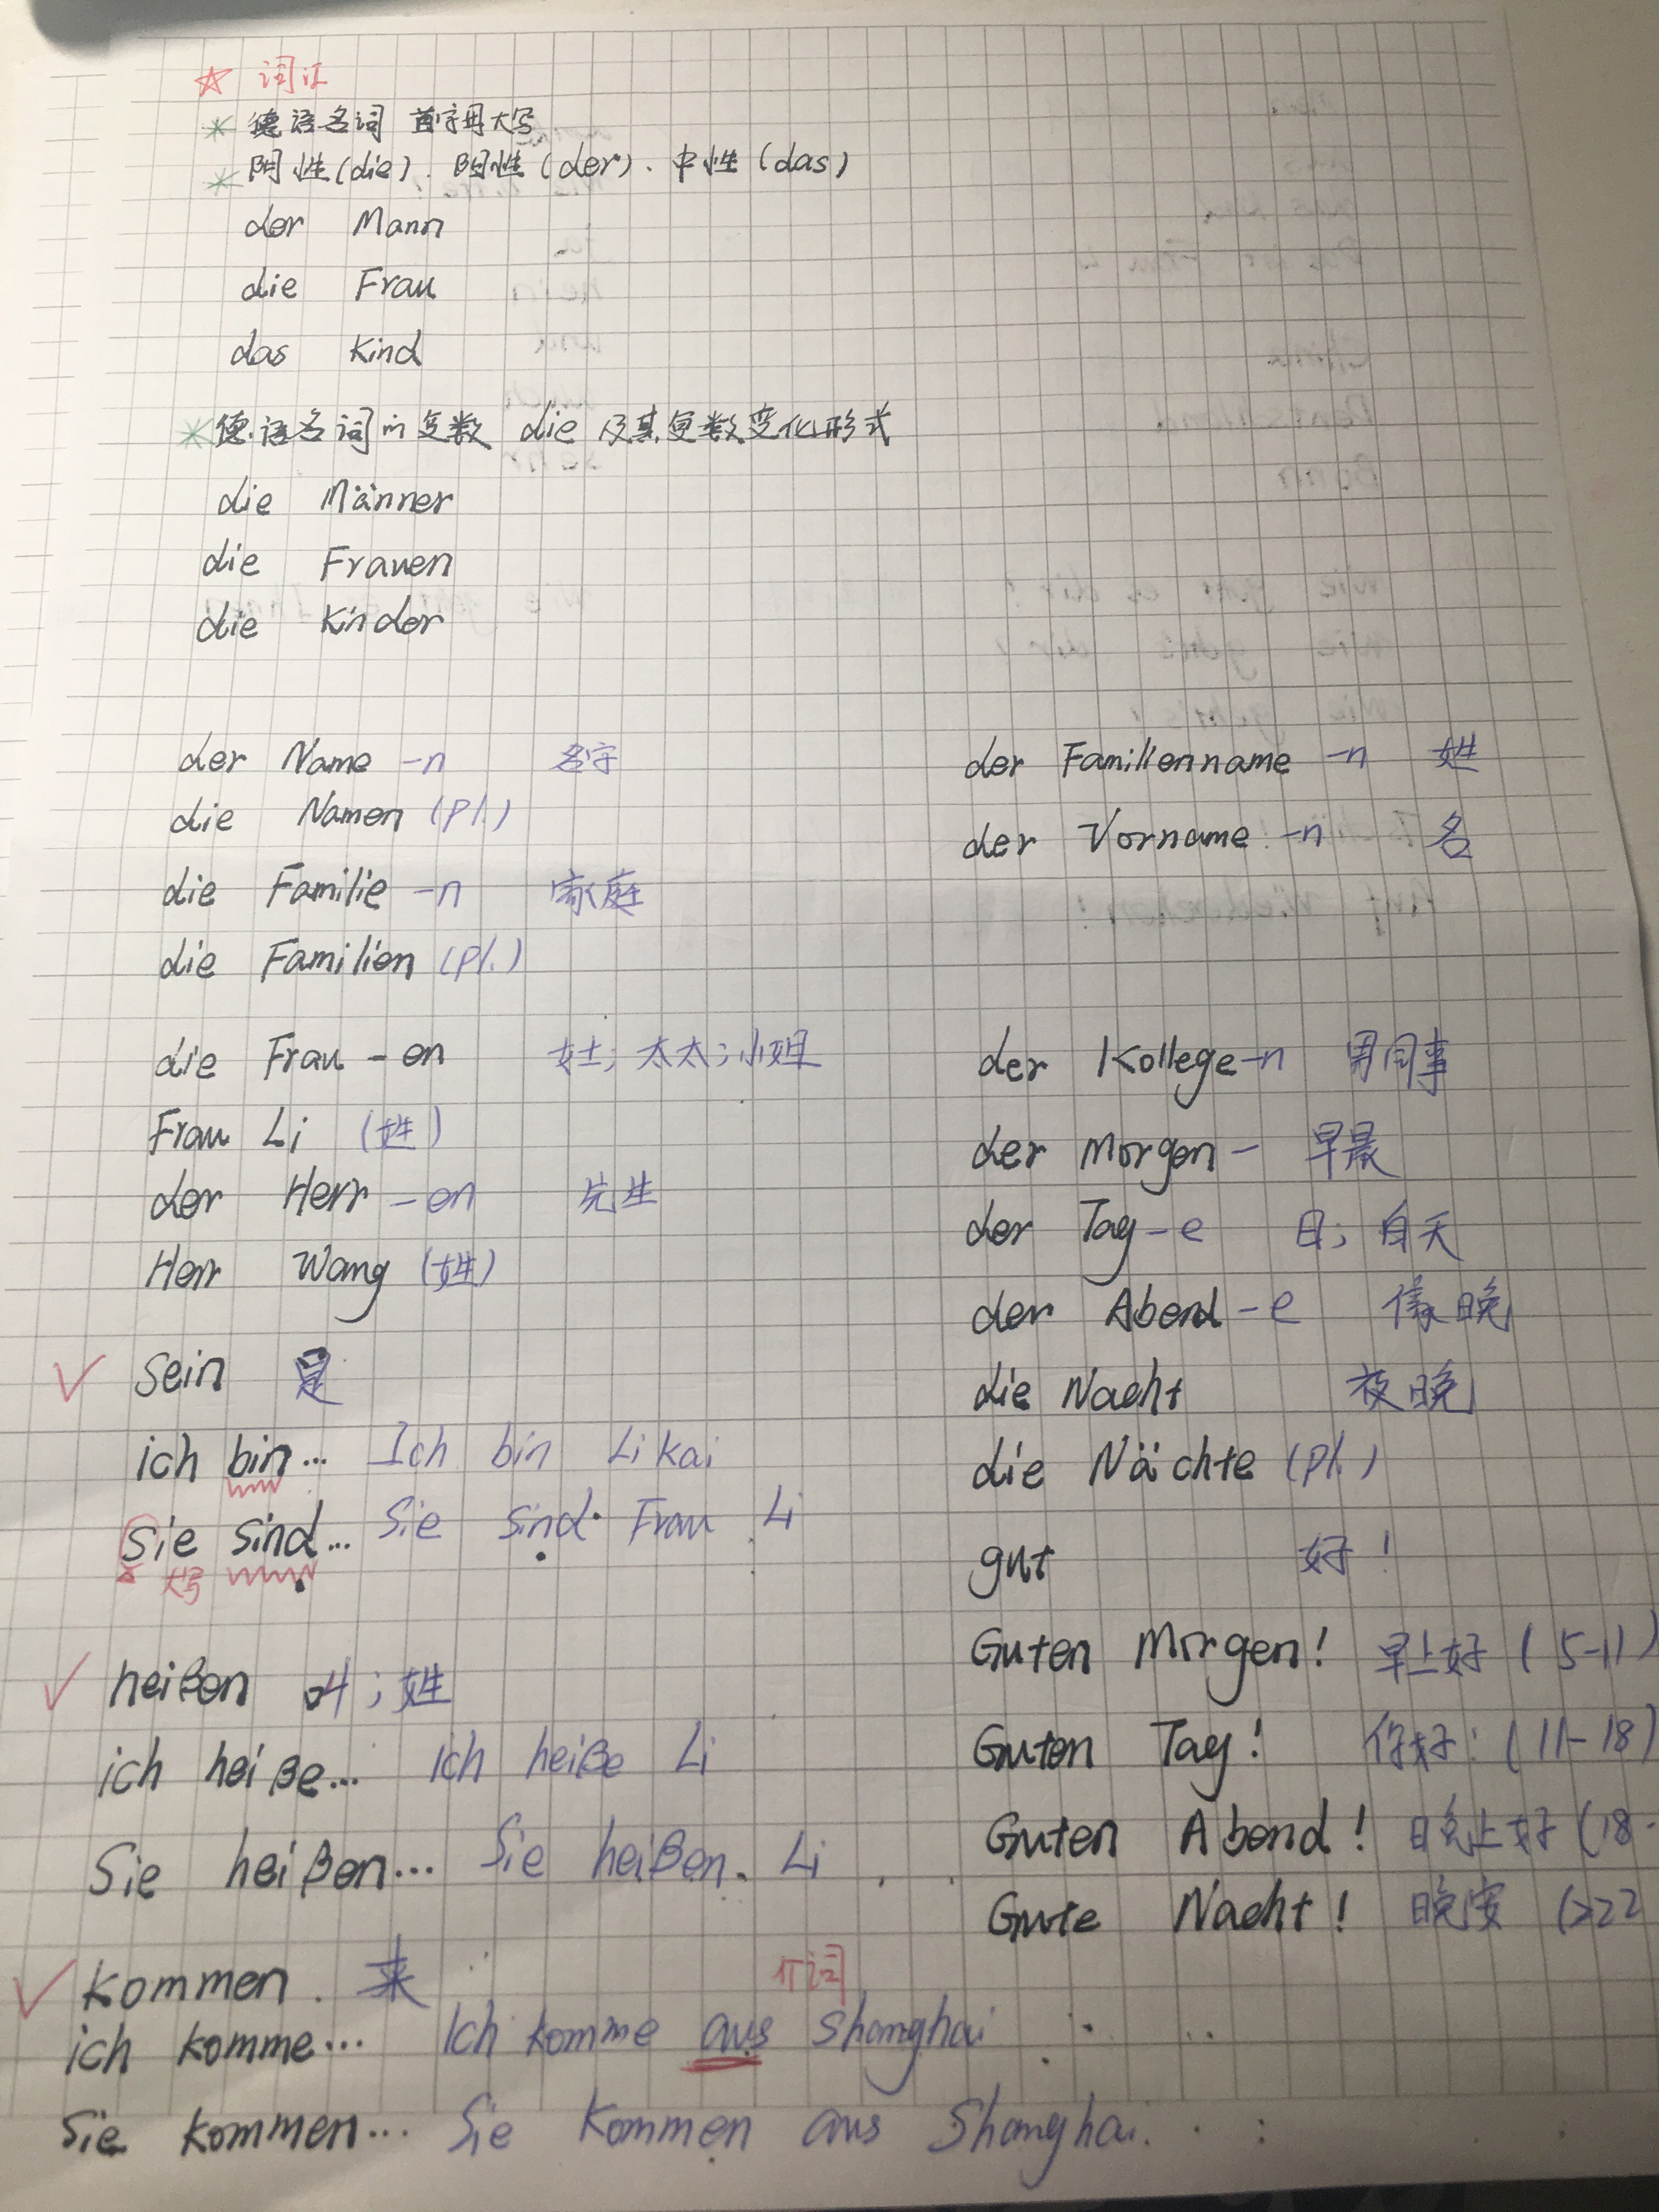 ☆ 词汇
* 德语名词 首字母大写
* 阴性(die). 阳性(der). 中性(das)
der Mann
die Frau
das Kind
* 德语名词的复数 die 及其复数变化形式
die Männer
die Frauen
die Kinder
der Name -n 名字
die Namen (pl.)
die Familie -n 家庭
die Familien (pl.)
die Frau -en 女士; 太太; 小姐
Frau Li (姓)
der Herr -en 先生
Herr Wang (姓)
✓ sein 是
ich bin... Ich bin Li kai
Sie sind... Sie sind Frau Li
大写
✓ heißen 叫; 姓
ich heiße... ich heiße Li
Sie heißen... Sie heißen Li
✓ kommen 来
介词
ich komme... Ich komme aus Shanghai
Sie kommen... Sie kommen aus Shanghai.
der Familienname -n 姓
der Vorname -n 名
der Kollege -n 男同事
der Morgen - 早晨
der Tag -e 日; 白天
der Abend -e 傍晚
die Nacht 夜晚
die Nächte (pl.)
gut 好!
Guten Morgen! 早上好 (5-11)
Guten Tag! 你好! (11-18)
Guten Abend! 晚上好 (18-
Gute Nacht! 晚安 (≥22